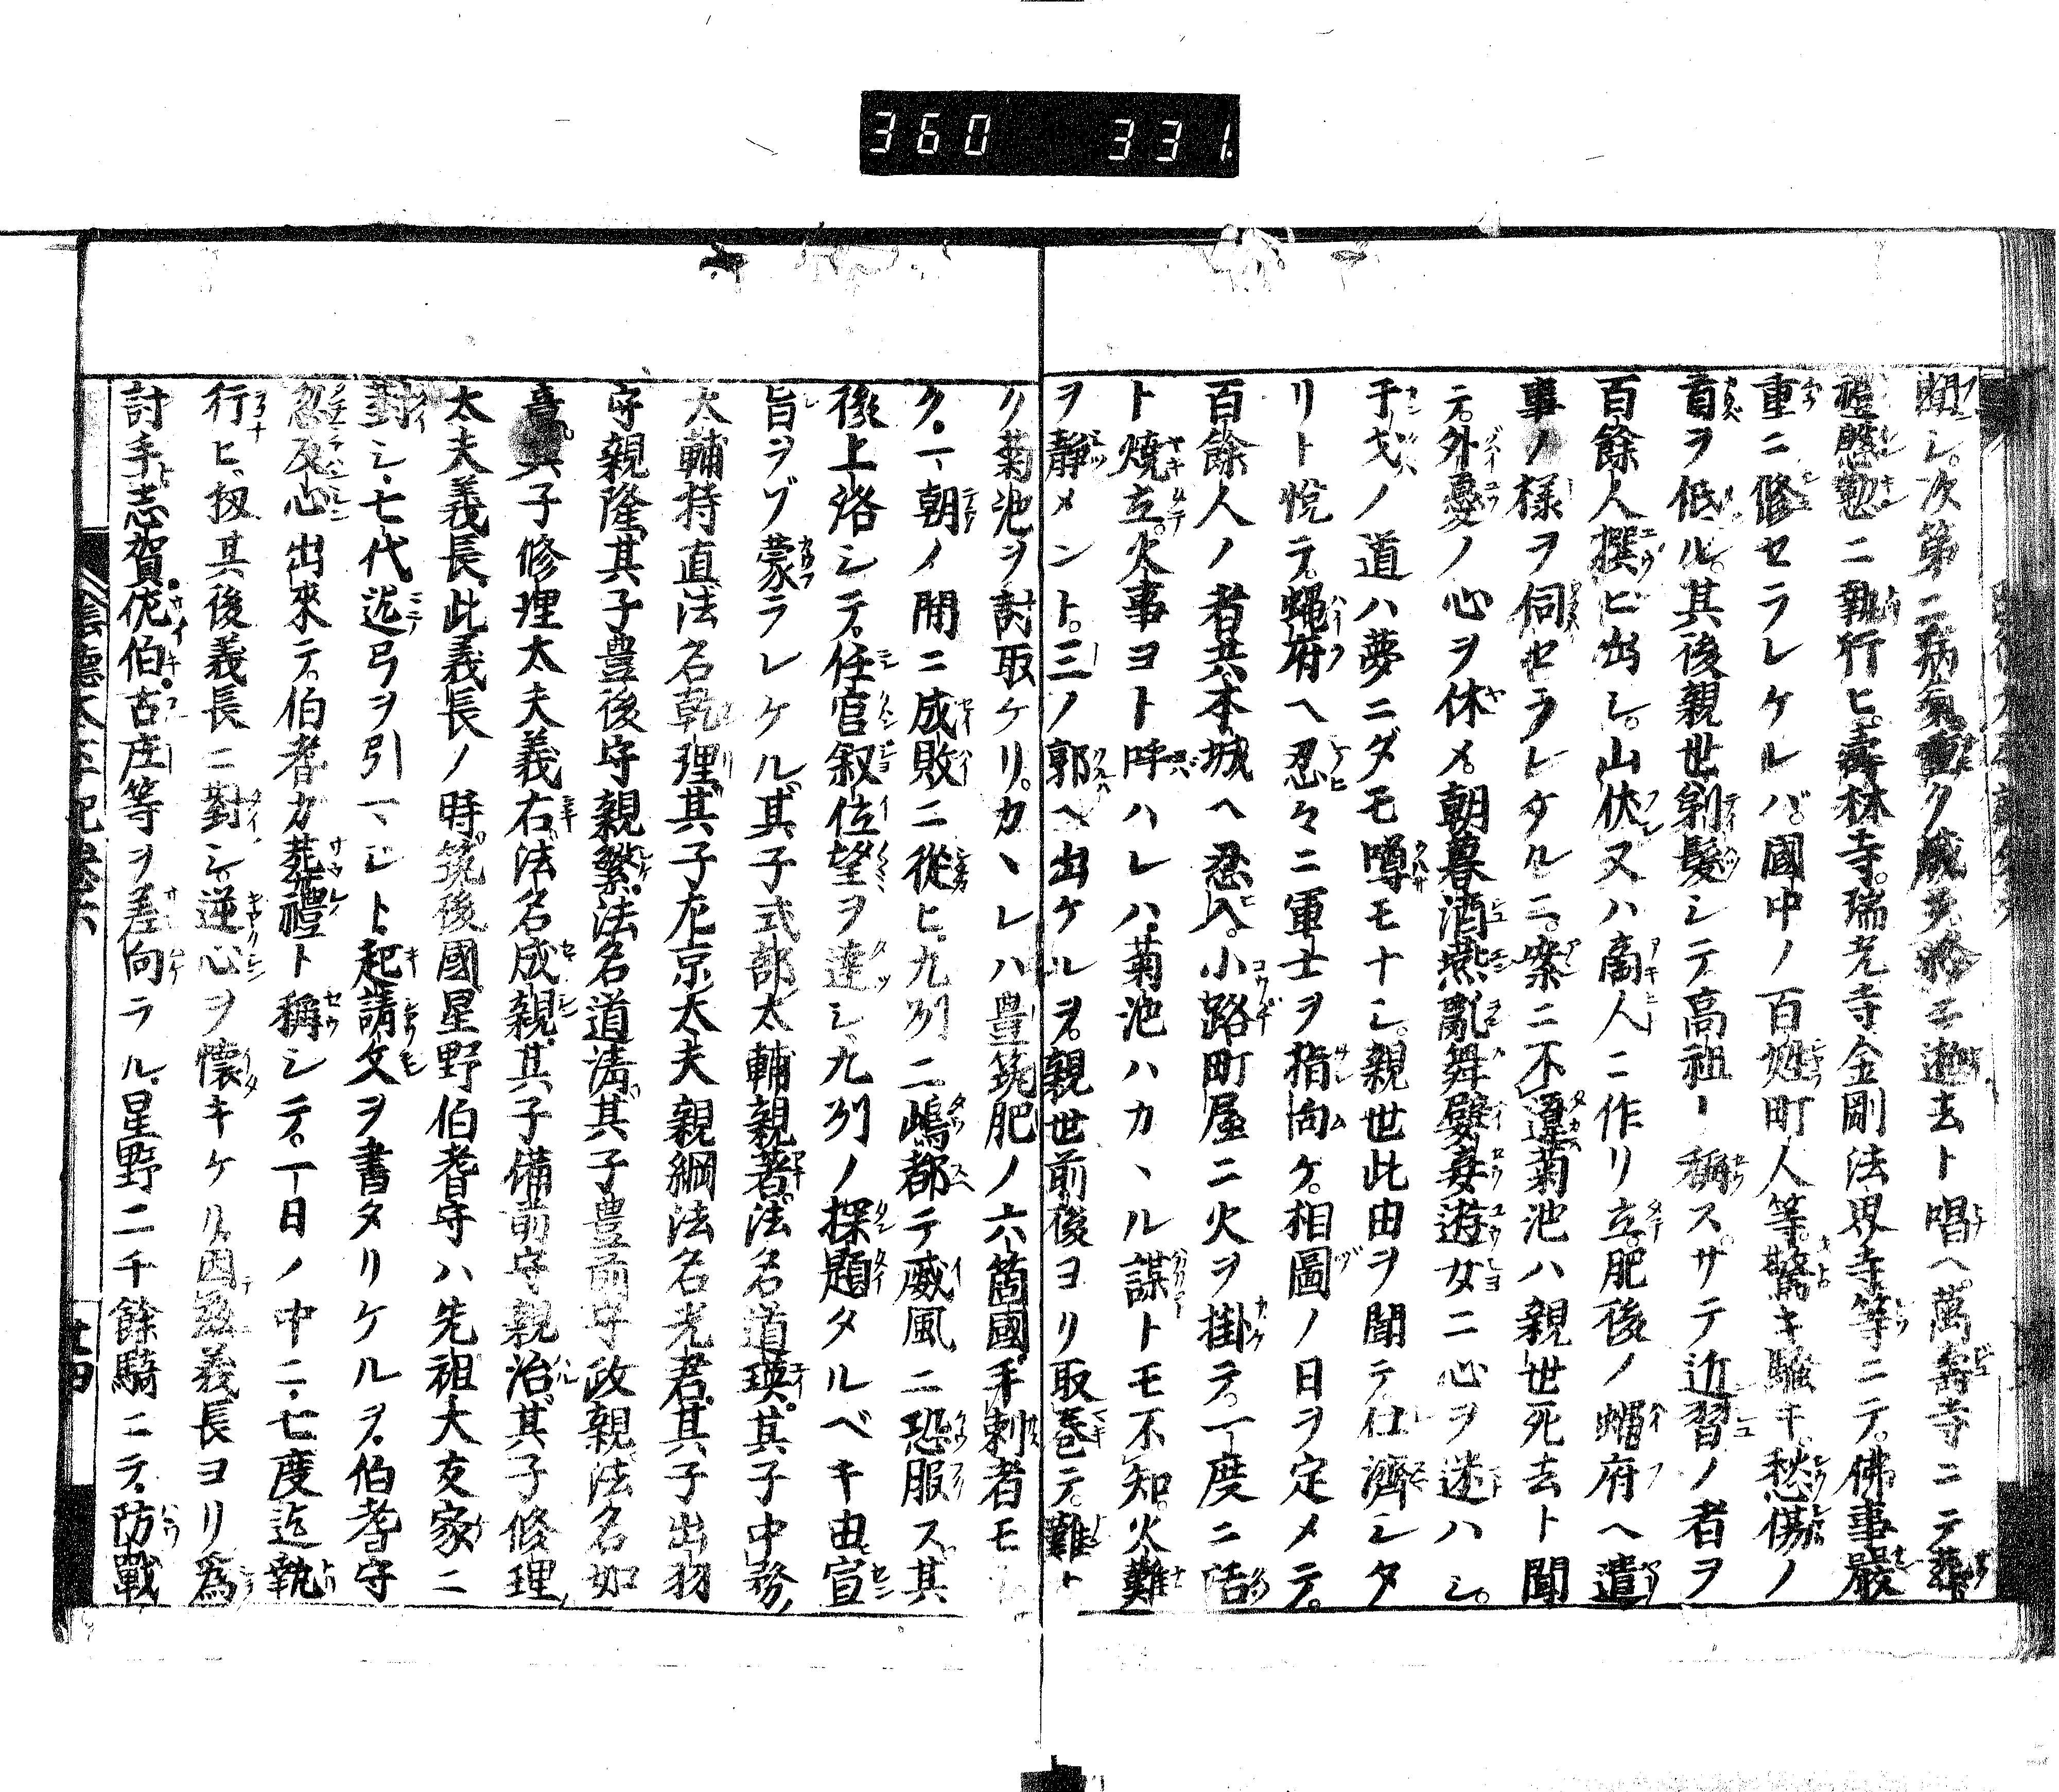 360 331
聞シ。次第ニ病氣重ク成玉ヒ終ニ逝去ト唱ヘ。萬壽寺ニテ葬
禮慇懃ニ執行ヒ。壽林寺。瑞光寺金剛法界寺等ニテ。佛事嚴
重ニ修セラレケルバ。國中ノ百姓町人等。驚キ騒キ。愁傷ノ
首ヲ低ル。其後親世剃髮シテ高祖ト稱ス。サテ近習ノ者ヲ
百餘人撰ビ出シ。山伏又ハ商人ニ作リ立。肥後ノ蠅府ヘ遣
事ノ様ヲ伺セラレケルニ。案ニ不違菊池ハ親世死去ト聞
テ。外憂ノ心ヲ休メ。朝暮酒燕亂舞嬖妾遊女ニ心ヲ迷ハシ。
干戈ノ道ハ夢ニダモ噂モナシ。親世此由ヲ聞テ仕濟シタ
リト悦テ。蠅府ヘ忍々ニ軍士ヲ指向ケ。相圖ノ日ヲ定メテ。
百餘人ノ者共。本城ヘ忍入。小路町屋ニ火ヲ掛テ。一度ニ咶
ト焼立。火事ヨト呼ハレハ。菊池ハカヽル謀トモ不知。火難
ヲ靜メント。三ノ郭ヘ出ケルヲ。親世前後ヨリ取巻テ。難ト
ク菊池ヲ討取ケリ。カヽレハ豊筑肥ノ六箇國。手刺者モ
ク。一朝ノ間ニ成敗ニ從ヒ。九列二嶋都テ威風ニ恐服ス。其
後上洛シテ。任官叙位望ヲ達シ、九列ノ探題タルベキ由宣
旨ヲゾ蒙ラレケル。其子式部太輔親著。法名道瑛。其子中務
太輔持直法名乾理。其子左京太夫親綱法名光君。其子出羽
守親隆。其子豊後守親繁。法名道清。其子豊前守政親。法名如
意。其子修理太夫義右。法名成親。其子備前守親治。其子修理
太夫義長。此義長ノ時。筑後國星野伯耆守ハ先祖大友家ニ
對シ。七代迄弓ヲ引マシト。起請文ヲ書タリケルヲ。伯耆守
忽反心出來テ。伯耆カ葬禮ト稱シテ。一日ノ中ニ。七度迄執
行ヒ。扨其後義長ニ對シ。逆心ヲ懐キケリ。因茲義長ヨリ爲
討手志賀。佐伯。古庄等ヲ差向ラル。星野二千餘騎ニテ。防戰